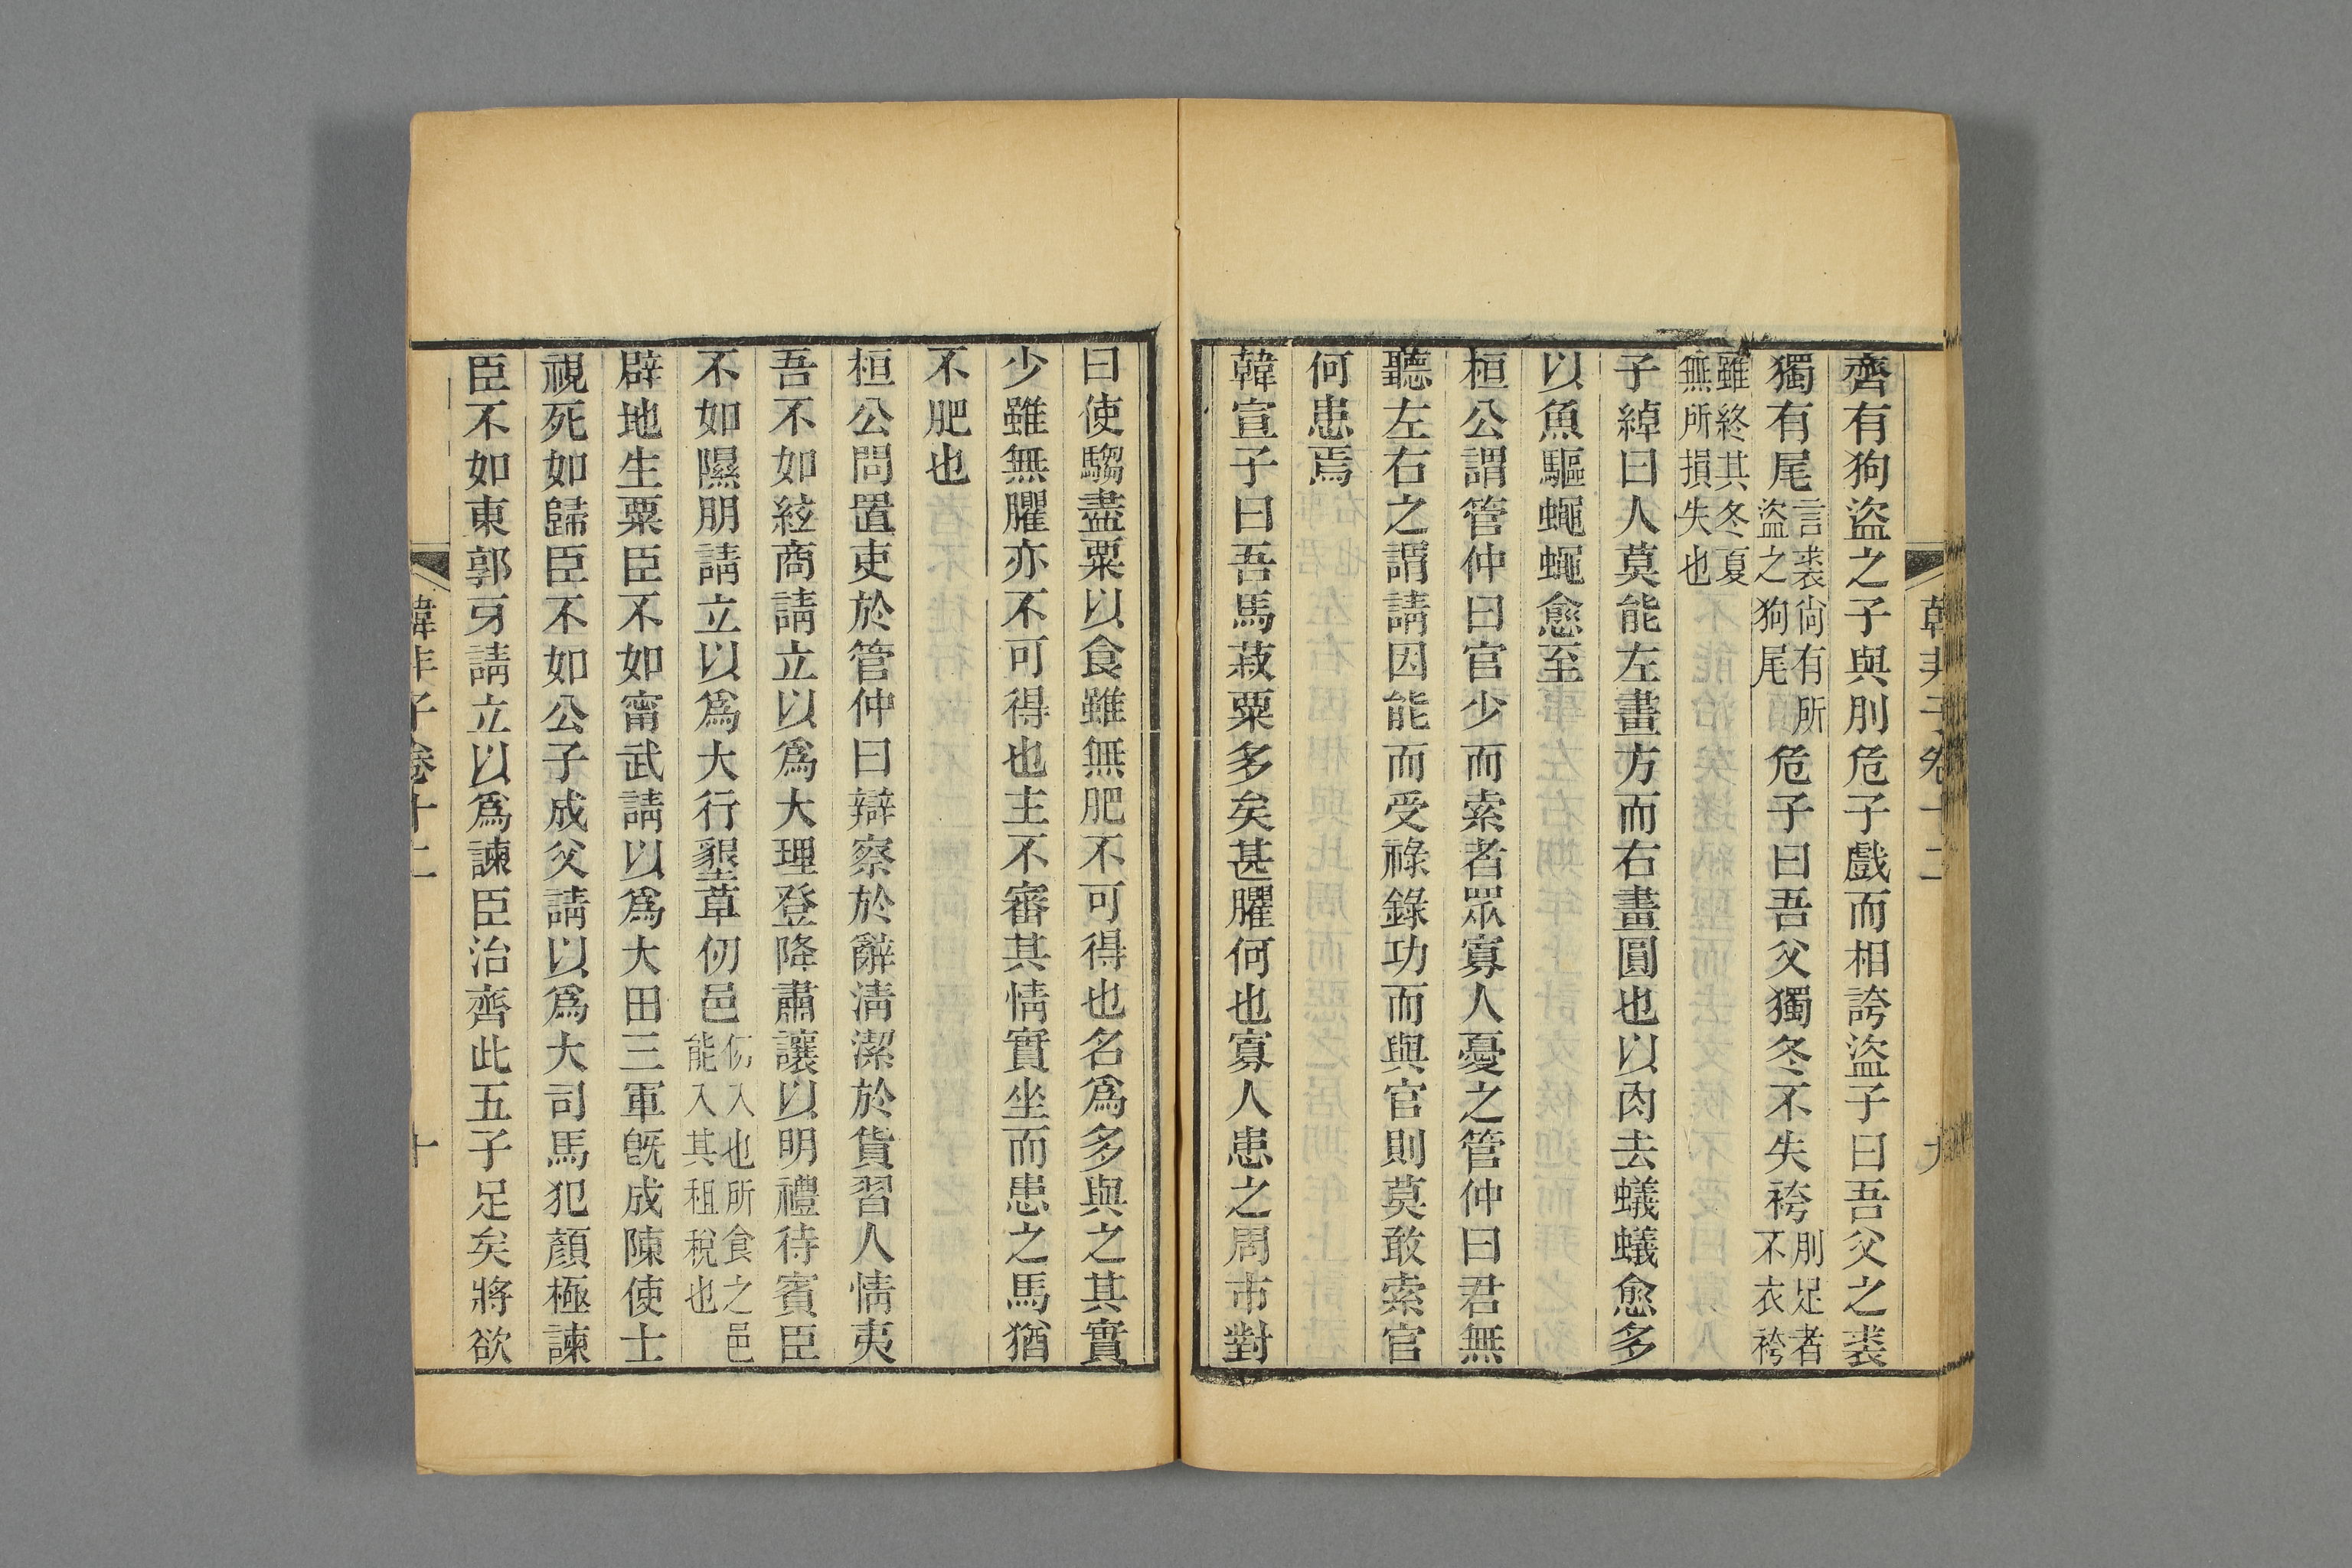 韓非子卷十二
九
齊有狗盜之子與刖危子戲而相誇盜子曰吾父之裘
獨有尾言裘尚有所盜之狗尾危子曰吾父獨冬不失袴刖足者不衣袴
雖終其冬夏無所損失也
子綽曰人莫能左畫方而右畫圓也以肉去蟻蟻愈多
以魚驅蠅蠅愈至
桓公謂管仲曰官少而索者眾寡人憂之管仲曰君無
聽左右之謂請因能而受祿錄功而與官則莫敢索官
何患焉
韓宣子曰吾馬菽粟多矣甚臞何也寡人患之周市對
曰使騶盡粟以食雖無肥不可得也名爲多與之其實
少雖無臞亦不可得也主不審其情實坐而患之馬猶
不肥也
桓公問置吏於管仲曰辯察於辭清潔於貨習人情夷
吾不如絃商請立以爲大理登降肅讓以明禮待賓臣
不如隰朋請立以爲大行墾草仞邑仞入也所食之邑能入其租稅也
辟地生粟臣不如甯武請以爲大田三軍旣成陳使士
視死如歸臣不如公子成父請以爲大司馬犯顏極諫
臣不如東郭牙請立以爲諫臣治齊此五子足矣將欲
韓非子卷十二
十